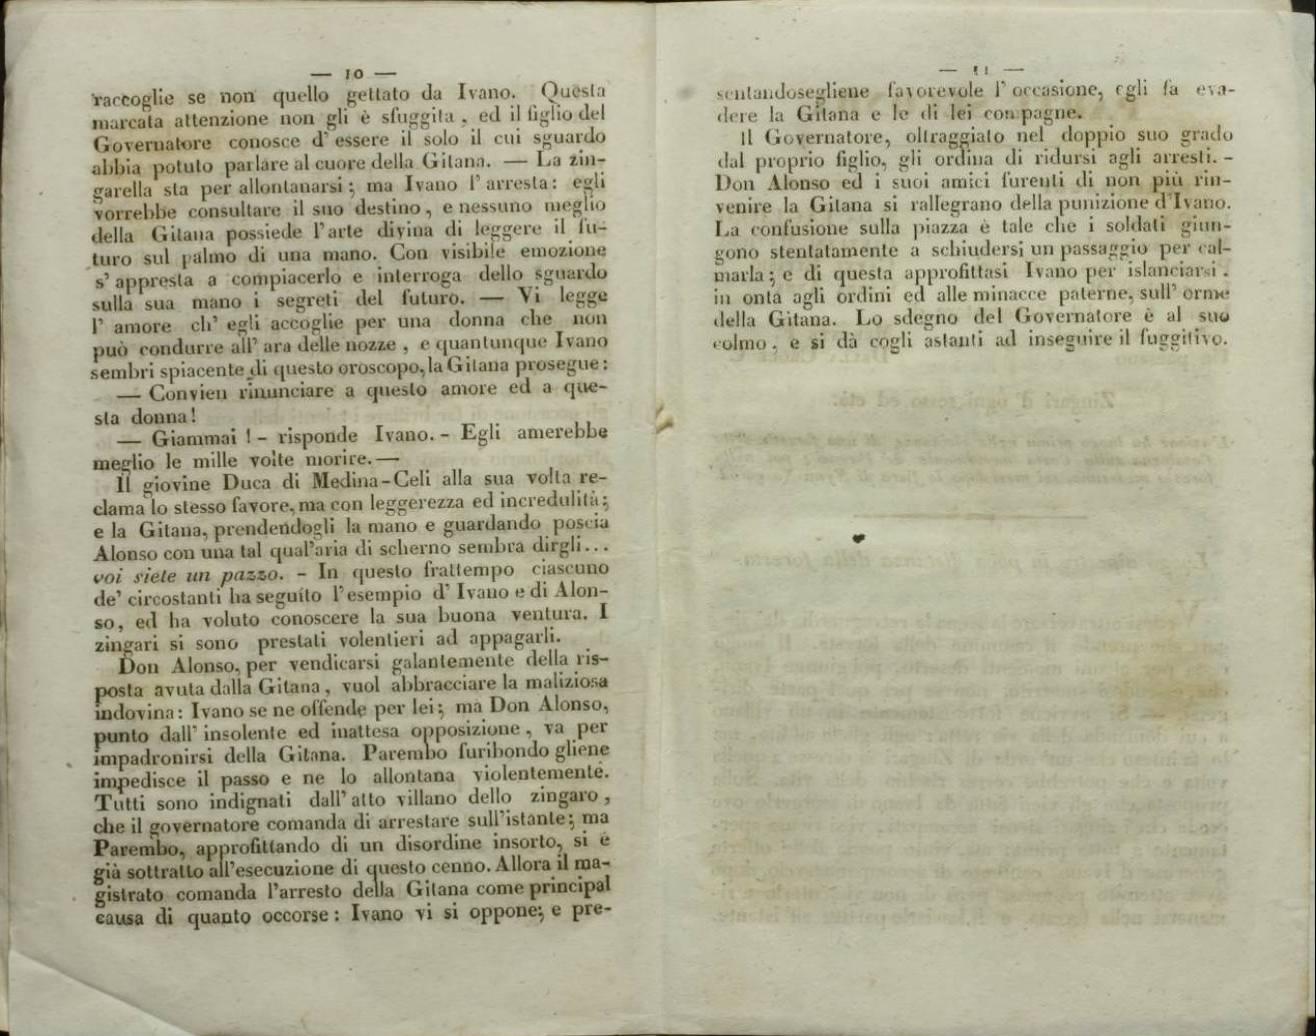 — 10 —
raccoglie se non quello gettato da Ivano. Questa
marcata attenzione non gli è sfuggita, ed il figlio del
Governatore conosce d' essere il solo il cui sguardo
abbia potuto parlare al cuore della Gitana. — La zin-
garella sta per allontanarsi; ma Ivano l' arresta: egli
vorrebbe consultare il suo destino, e nessuno meglio
della Gitana possiede l'arte divina di leggere il fu-
turo sul palmo di una mano. Con visibile emozione
s' appresta a compiacerlo e interroga dello sguardo
sulla sua mano i segreti del futuro. — Vi legge
l' amore ch' egli accoglie per una donna che non
può condurre all' ara delle nozze, e quantunque Ivano
sembri spiacente di questo oroscopo, la Gitana prosegue:
— Convien rinunciare a questo amore ed a que-
sta donna!
— Giammai! - risponde Ivano. - Egli amerebbe
meglio le mille volte morire. —
Il giovine Duca di Medina-Celi alla sua volta re-
clama lo stesso favore, ma con leggerezza ed incredulità;
e la Gitana, prendendogli la mano e guardando poscia
Alonso con una tal qual'aria di scherno sembra dirgli...
voi siete un pazzo. - In questo frattempo ciascuno
de' circostanti ha seguito l'esempio d' Ivano e di Alon-
so, ed ha voluto conoscere la sua buona ventura. I
zingari si sono prestati volentieri ad appagarli.
Don Alonso, per vendicarsi galantemente della ris-
posta avuta dalla Gitana, vuol abbracciare la maliziosa
indovina: Ivano se ne offende per lei; ma Don Alonso,
punto dall' insolente ed inattesa opposizione, va per
impadronirsi della Gitana. Parembo furibondo gliene
impedisce il passo e ne lo allontana violentemente.
Tutti sono indignati dall' atto villano dello zingaro,
che il governatore comanda di arrestare sull'istante; ma
Parembo, approfittando di un disordine insorto, si è
già sottratto all'esecuzione di questo cenno. Allora il ma-
gistrato comanda l'arresto della Gitana come principal
causa di quanto occorse: Ivano vi si oppone; e pre-
— 11 —
sentandosegliene favorevole l' occasione, egli fa eva-
dere la Gitana e le di lei compagne.
Il Governatore, oltraggiato nel doppio suo grado
dal proprio figlio, gli ordina di ridursi agli arresti. -
Don Alonso ed i suoi amici furenti di non più rin-
venire la Gitana si rallegrano della punizione d'Ivano.
La confusione sulla piazza è tale che i soldati giun-
gono stentatamente a schiudersi un passaggio per cal-
marla; e di questa approfittasi Ivano per islanciarsi.
in onta agli ordini ed alle minacce paterne, sull' orme
della Gitana. Lo sdegno del Governatore è al suo
colmo, e si dà cogli astanti ad inseguire il fuggitivo.